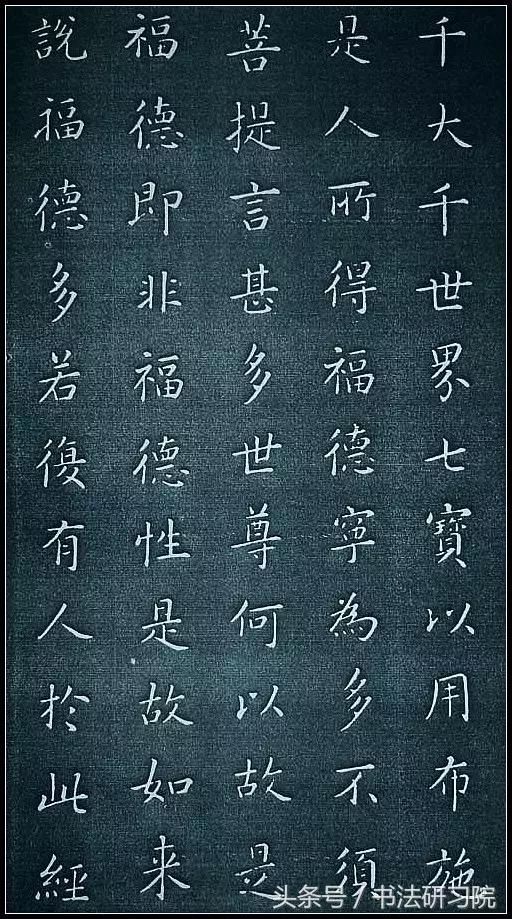 千大千世界七寶以用布施
是人所得福德寧為多不須
菩提言甚多世尊何以故是
福德即非福德性是故如来
說福德多若復有人於此經
头条号/书法研习院